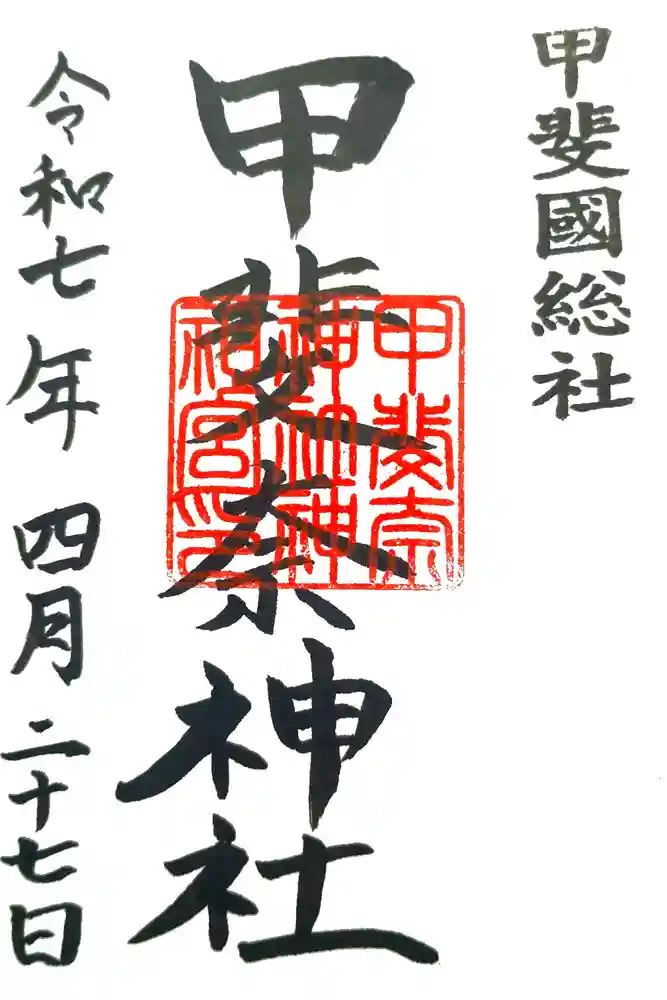 甲斐國総社
甲斐奈神社
甲斐奈
神社神
令和七年四月二十七日